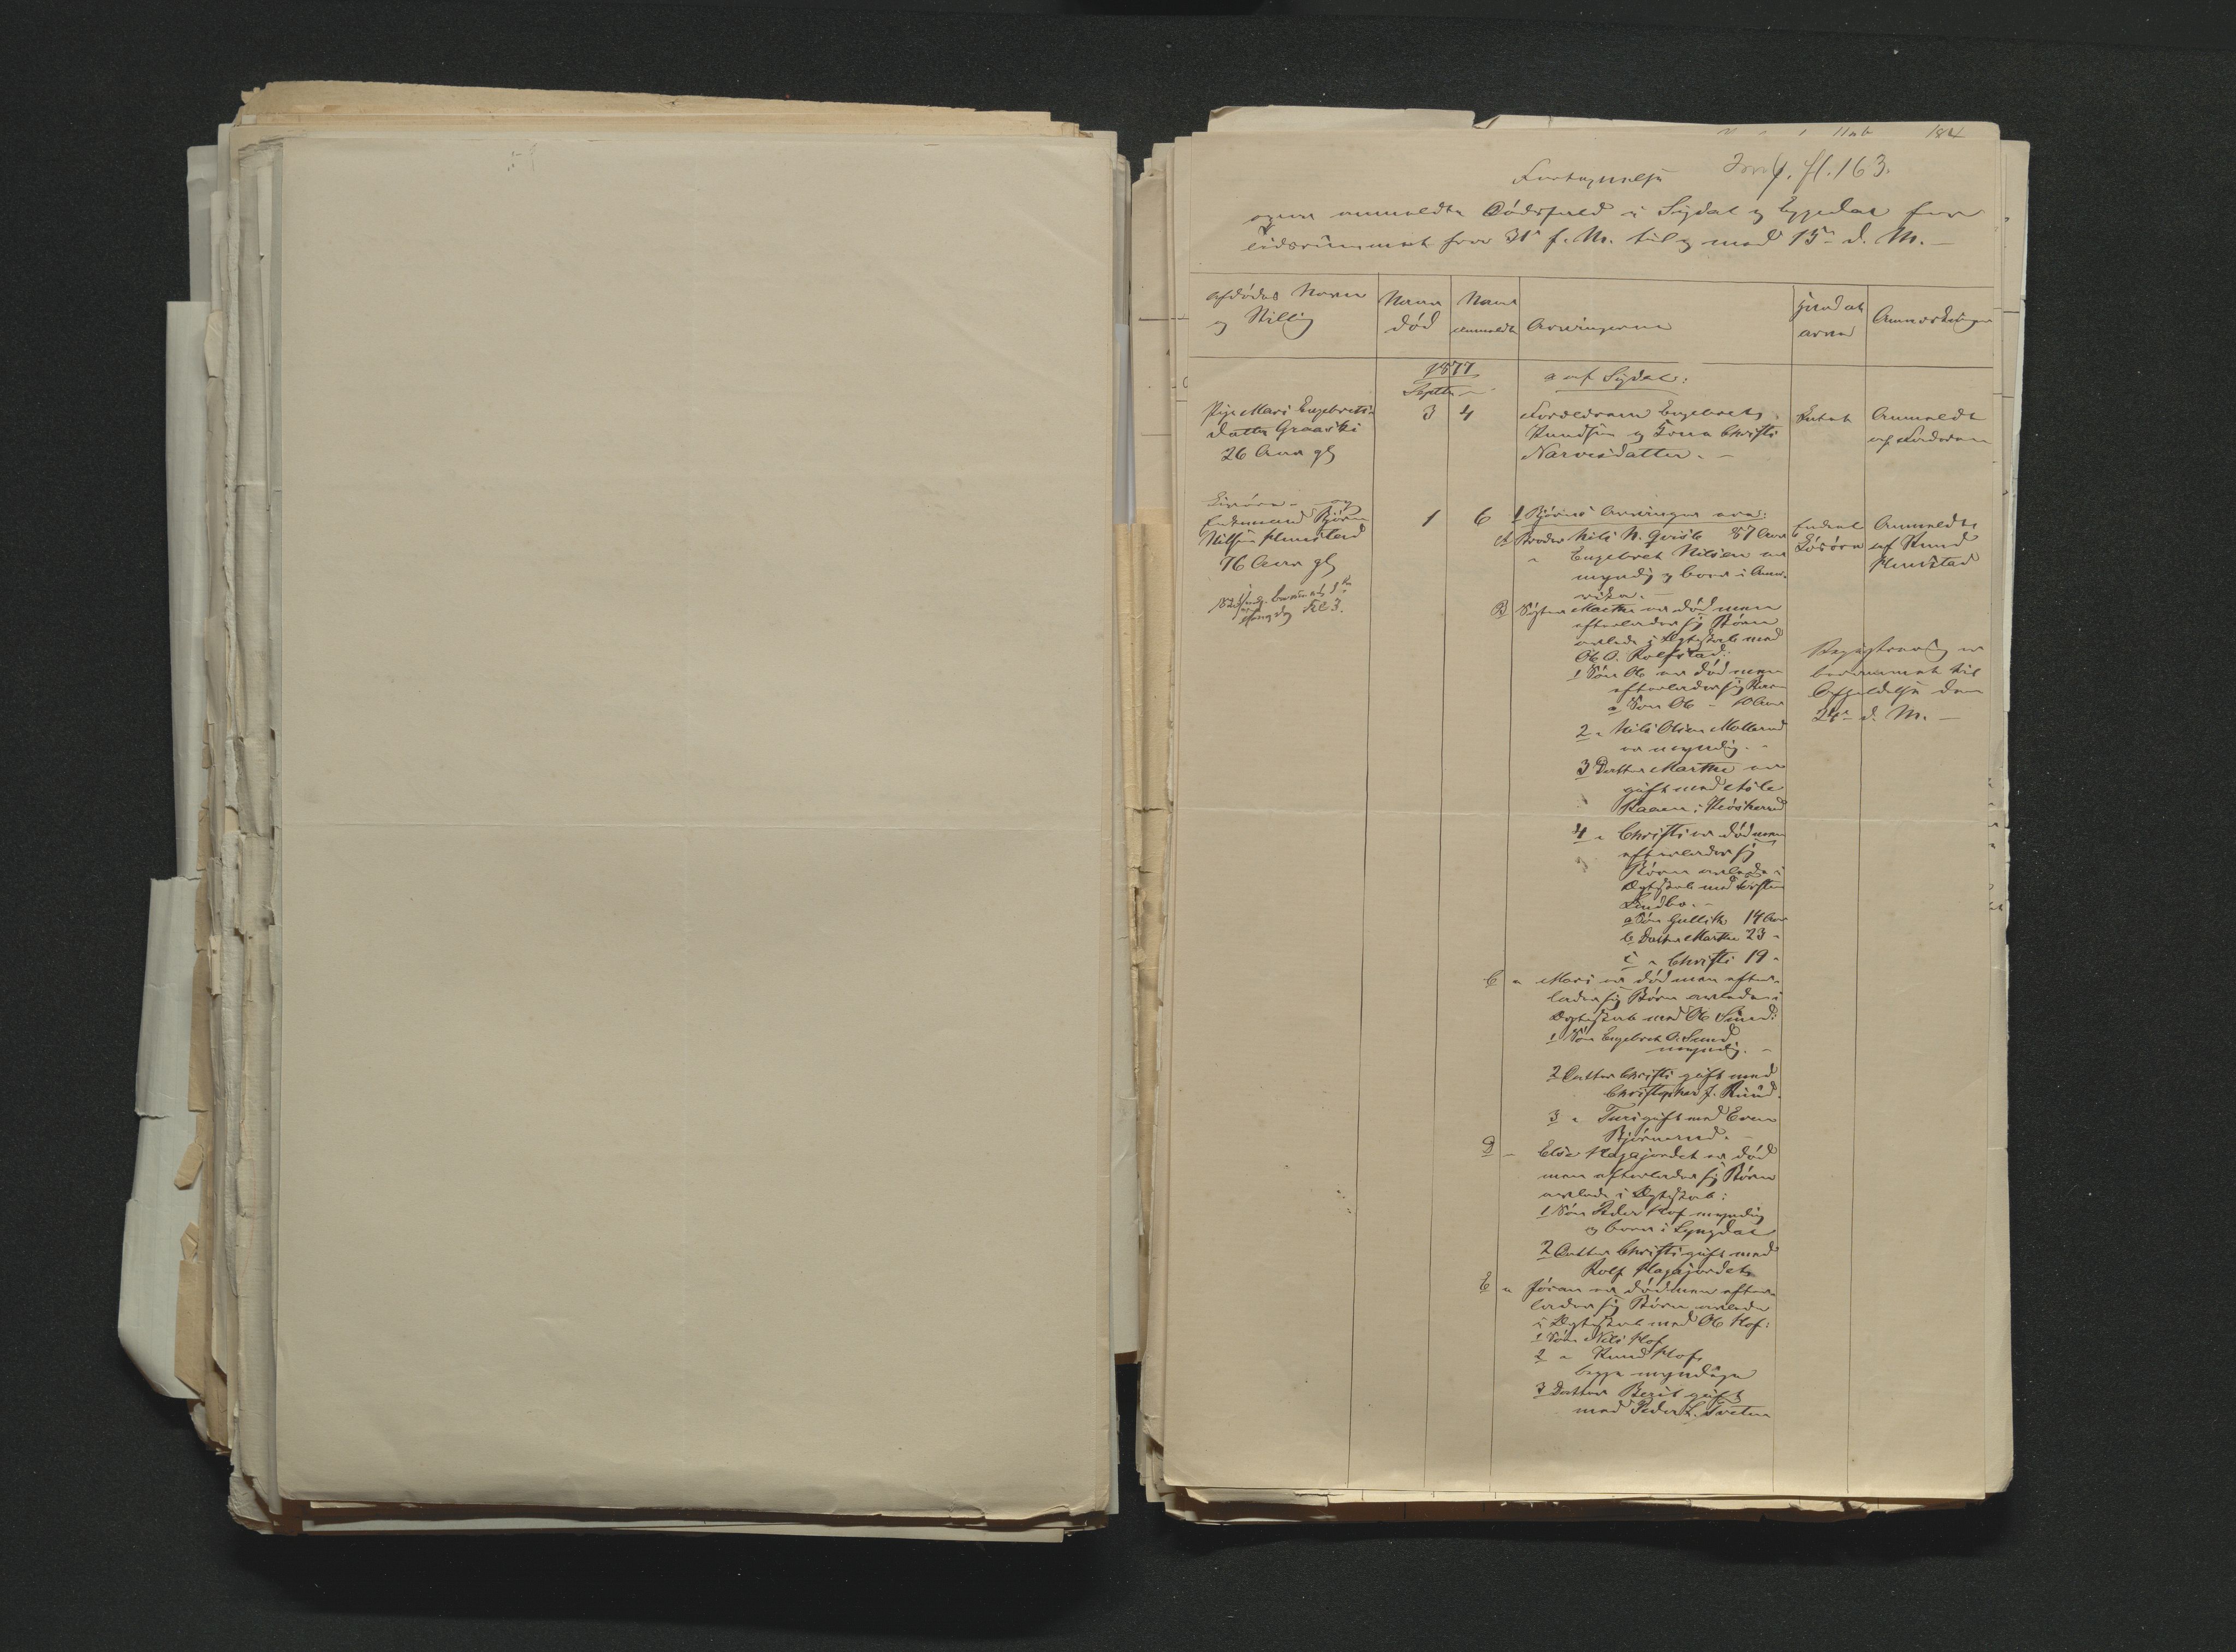 184
Jvnf. fl. 163.
Fortegnelse
over anmeldte Dødsfald i Sigdal og Eggedal for
tidsrummet fra 31te f. M. til og med 15de d. M. —
Afdødes Navn
og Stilling
Naar
død
Naar
anmeldt
Arvingerne
Hvad at
arve
Anmærkninger
1877
Septbr
a af Sigdal:
Pige Mari Engebrets-
datter Graaski
26 Aar gl
3
4
Forældrene Engebret
Knudsen og Kone Christi
Narvesdatter. —
Intet
Anmeldt
af Faderen
og
Inderst Bjørn
Nilsen Hunstad
76 Aar gl
1
6
1 Bjørns Arvinger ere:
A Broder Nils N. Qvisle 57 Aar
" Engebret Nilsen er
myndig og boer i Ame-
rika. —
B Søster Marthe er død men
efterlader sig Børn
avlede i Ægteskab med
Ole O. Rolfstad:
1 Søn Ole er død men
efterlader sig Børn
a Søn Ole — 10 Aar
2 " Nils Olsen Mollerud
er myndig. —
3 Datter Marthe er
gift med Asle
Kaasen i Flesherred
4 " Christi er død men
efterlader sig
Børn avlede i
Ægteskab med Torsten
Lindbo. —
a Søn Gullik 14 Aar
b Datter Marthe 23 "
c " Christi 19 "
C " Mari er død men efter-
lader sig Børn avlede i
Ægteskab med Ole Sund:
1 Søn Engebret O. Sund
myndig. —
2 Datter Christi gift med
Christopher J. Ruud.
3 " Turi gift med Even
Bjørnerud. —
D " Elise Hagajordet er død
men efterlader sig Børn
avlede i Ægteskab:
1 Søn Peder Hof myndig
og boer i Lyngdal
2 Datter Christi gift med
Rolf Hagajordet
E " Jøran er død men efter-
lader sig Børn avlede
i Ægteskab med Ole Hof:
1 Søn Nils Hof
2 " Knud Hof
begge myndige
3 Datter Berit gift
med Peder L. Tveten
Løsøre
Anmeldt
af Knud
Hunstad
Registrering er
berammet til
Afholdelse den
24de d. M. —
Kl 3.